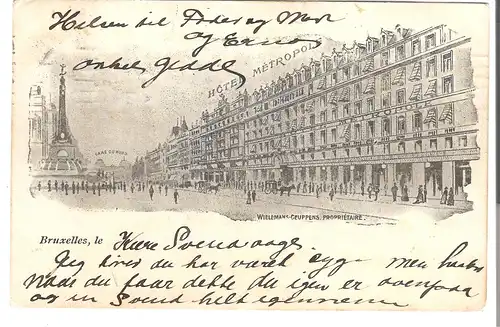 Hilsen til Fader og Mor
og Erna
onkel
HÔTEL MÉTROPOLE
GARE DU NORD
WIELEMANS-CEUPPENS, PROPRIÉTAIRE.
Bruxelles, le Kære Svenaage.
Jeg tror du har været syge men haaber
naar du faar dette du igen er ovenpaa
og